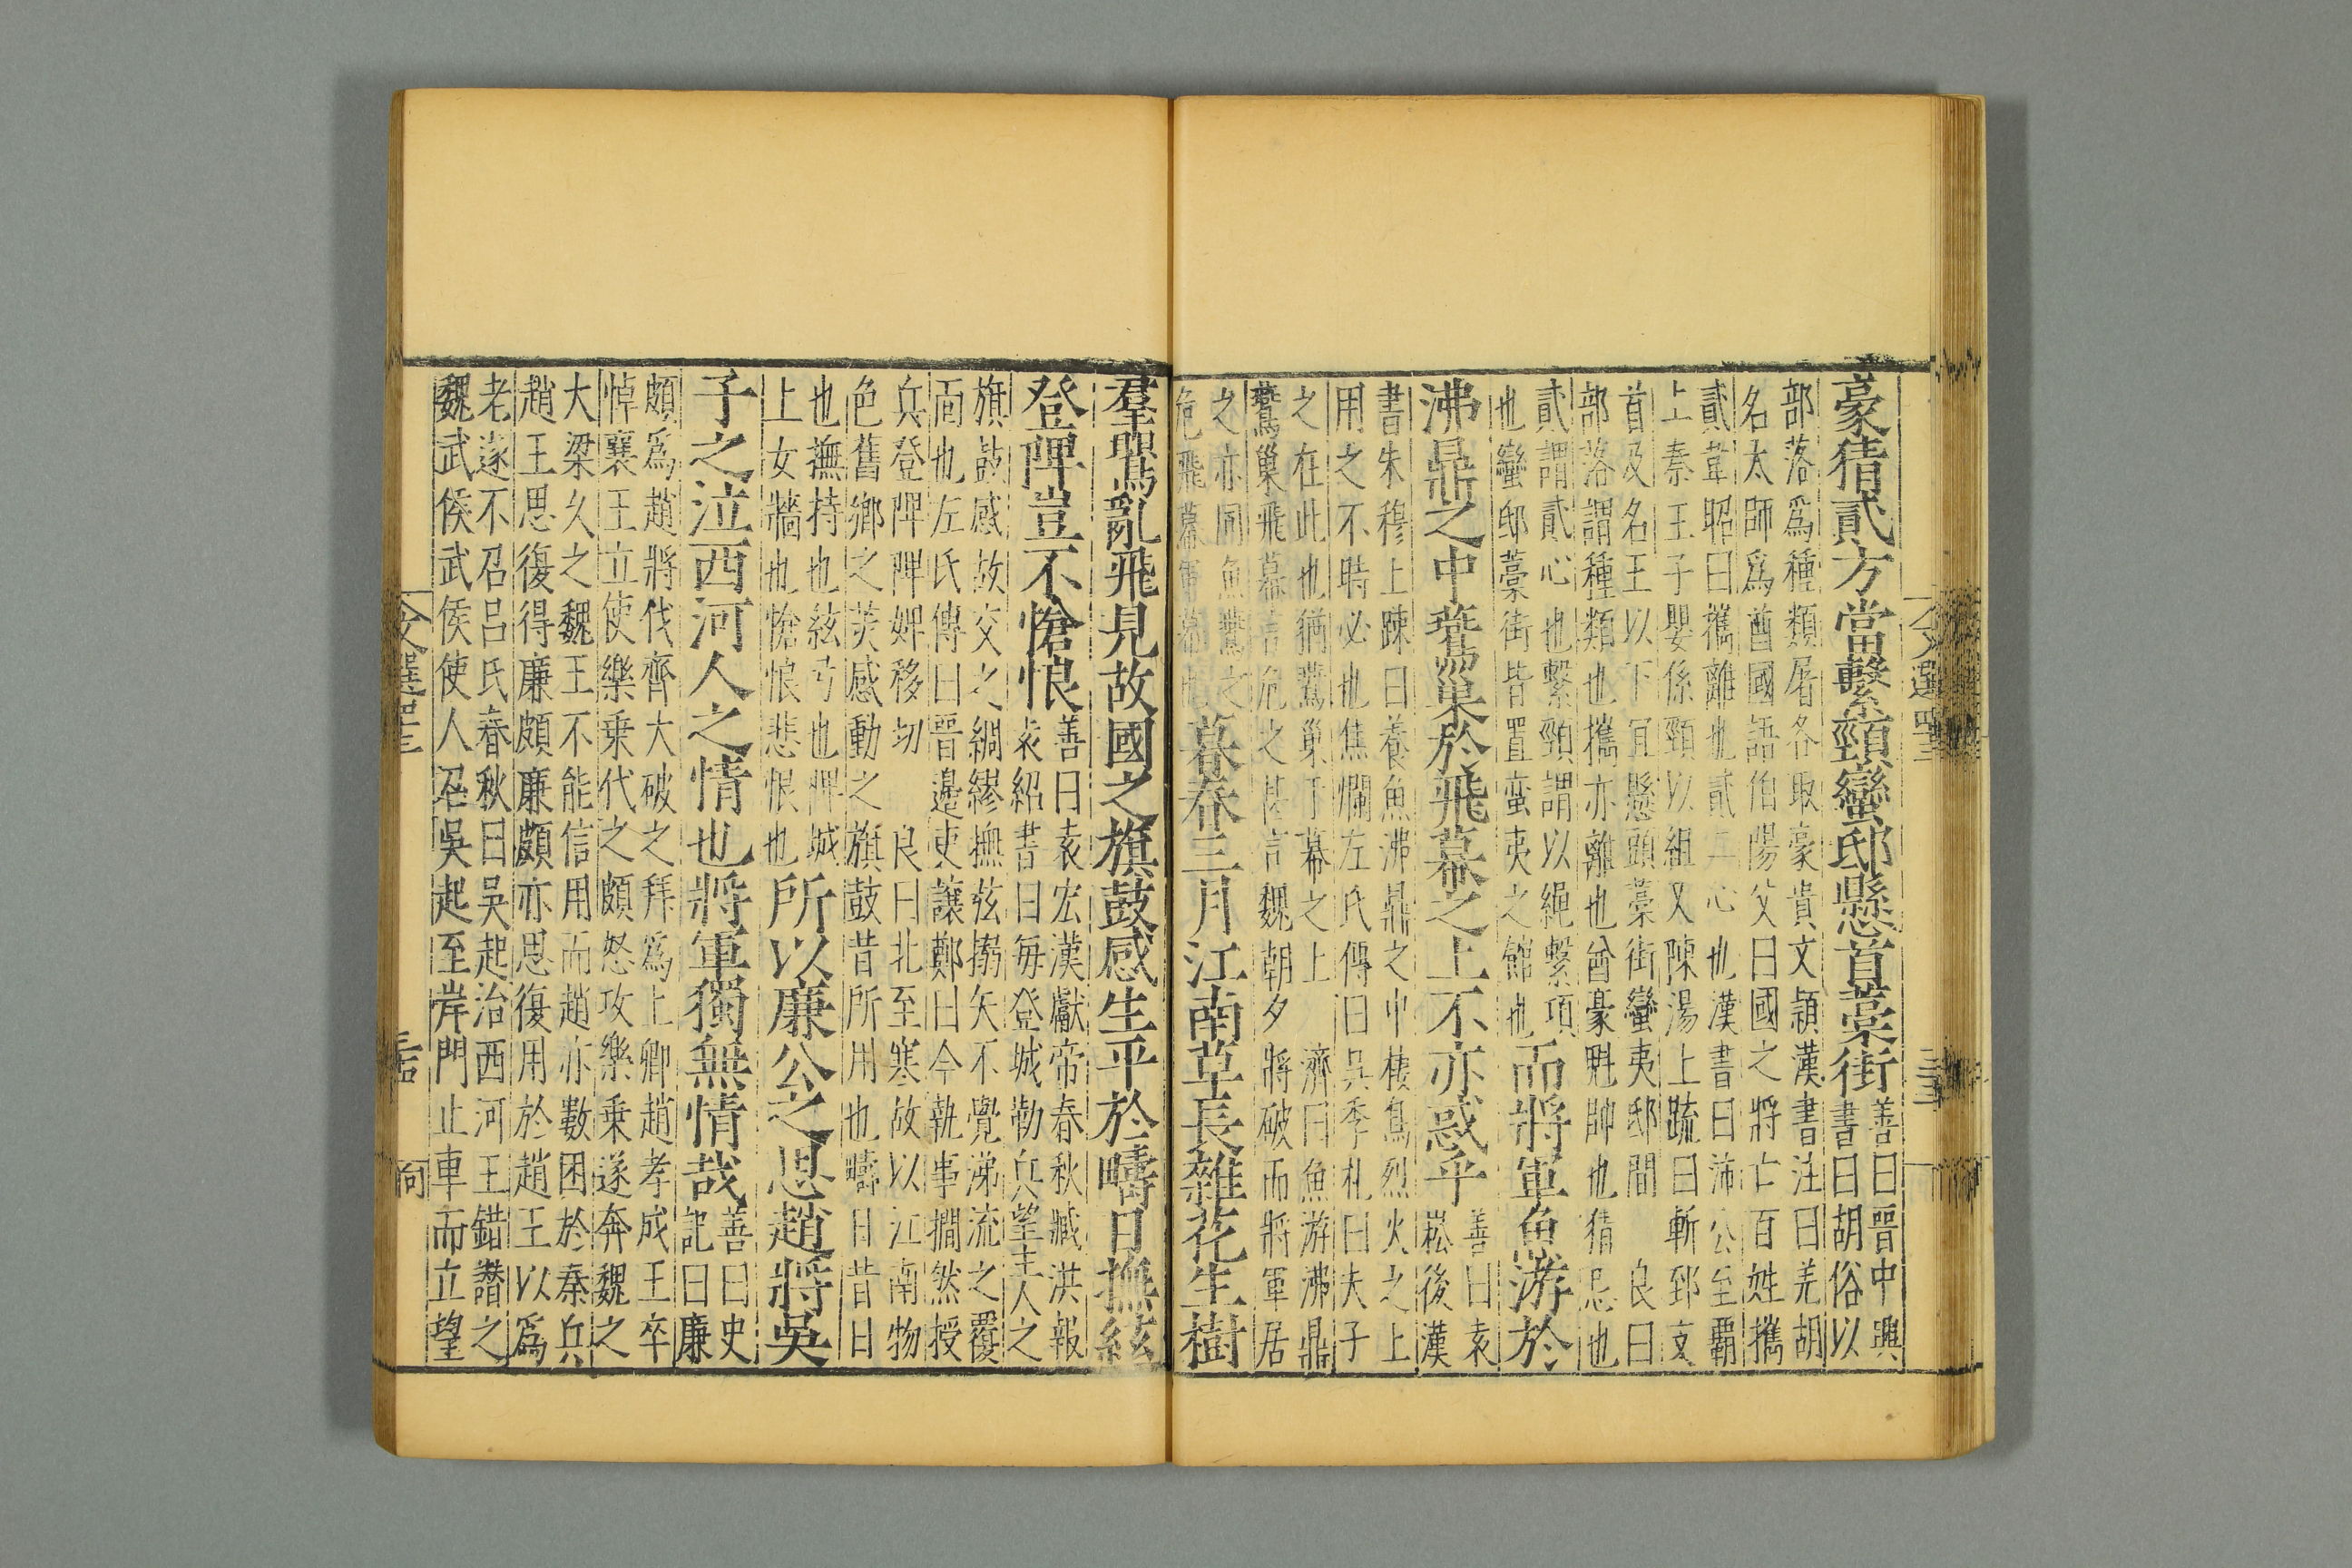 豪猜貳方當繫頸蠻邸懸首藁街
善曰晉中興
書曰胡俗以
部落爲種類屠各取豪貴文穎漢書注曰羌胡
名太師爲酋國語伯陽父曰國之將亡百姓㩦
貳韋昭曰㩦離也貳二心也漢書曰沛公至霸
上秦王子嬰係頸以組又陳湯上疏曰斬郅支
首及名王以下宜懸頭藁街蠻夷邸間 良曰
部落謂種類也㩦亦離也酋豪魁帥也猜忌也
貳謂貳心也繫頸謂以繩繫項
也蠻邸藁街皆置蛮夷之館也
而將軍魚游於
沸鼎之中鷰巢於飛幕之上不亦惑乎
善曰袁
崧後漢
書朱穆上疎曰養魚沸鼎之中棲鳥烈火之上
用之不時必也焦爛左氏傳曰吳季札曰夫子
之在此也猶鷰巢于幕之上 濟曰魚游沸鼎
鷰巢飛幕言危之甚言魏朝夕將破而將軍居
之亦同魚鷰之
危飛幕軍幕也
暮春三月江南草長雜花生樹
羣鸎亂飛見故國之旗鼓感生平於疇日撫絃
登陴豈不愴悢
善曰袁宏漢獻帝春秋臧洪報
袁紹書曰每登城勒兵望主人之
旗鼓感故交之綢繆撫弦搦矢不覺涕流之覆
面也左氏傳曰晉邊吏讓鄭曰今執事撊然授
兵登陴陴婢移切 良曰北至寒故以江南物
色舊鄉之芙感動之旗鼓昔所用也疇日昔日
也撫持也絃弓也陴城
上女牆也愴悢悲恨也
所以廉公之思趙將吳
子之泣西河人之情也將軍獨無情哉
善曰史
記曰廉
頗爲趙將伐齊大破之拜爲上卿趙孝成王卒
悼襄王立使樂乗代之頗怒攻樂乗遂奔魏之
大梁久之魏王不能信用而趙亦數困於秦兵
趙王思復得廉頗廉頗亦思復用於趙王以爲
老遂不召吕氏春秋曰吳起治西河王錯譖之
魏武侯武侯使人召吳起至岸門止車而立望
文選